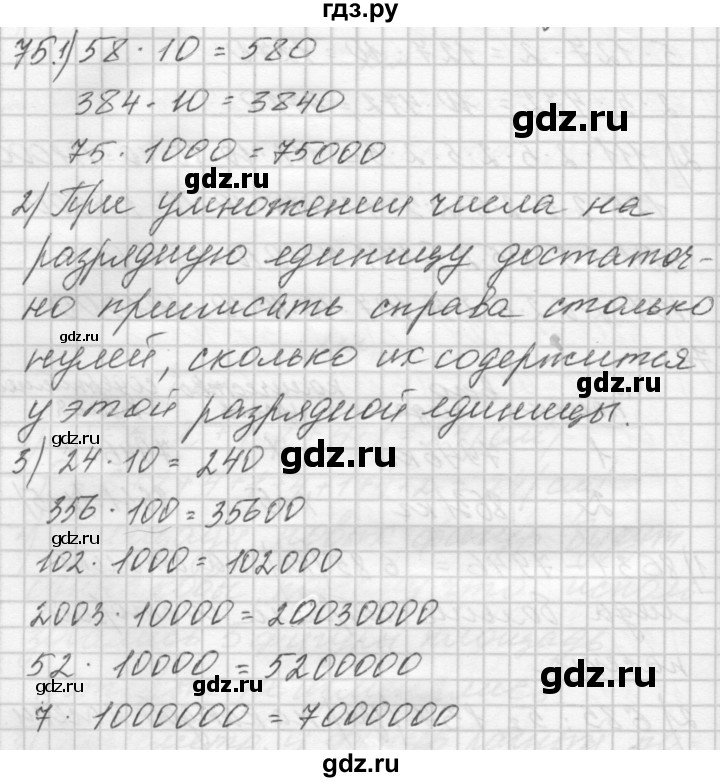 гдз.ру
75.1) 58 · 10 = 580
384 · 10 = 3840
gdz.ru
75 · 1000 = 75000
gdz.ru
2) При умножении числа на
разрядную единицу достаточ-
но приписать справа столько
gdz.ru
нулей, сколько их содержится
gdz.ru
у этой разрядной единицы.
gdz.ru
3) 24 · 10 = 240
gdz.ru
356 · 100 = 35600
gdz.ru
102 · 1000 = 102000
2003 · 10000 = 20030000
52 · 10000 = 5200000
gdz.ru
gdz.ru
gdz.ru
7 · 1000000 = 7000000